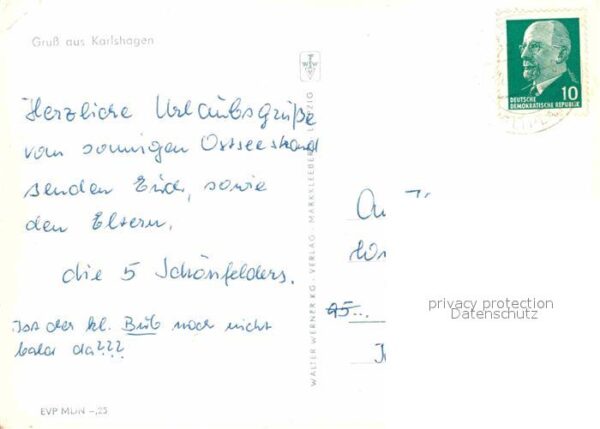 Gruß aus Karlshagen
DEUTSCHE
DEMOKRATISCHE REPUBLIK
10
Herzliche Urlaubsgrüße
vom sonnigen Ostseestrand
senden Euch, sowie
den Eltern,
die 5 Schönfelders.
Ist der kl. Bub noch nicht
bald da???
EVP MDN -,25
WALTER WERNER KG · VERLAG · MARKKLEEBERG · LEIPZIG
An
privacy protection
Datenschutz